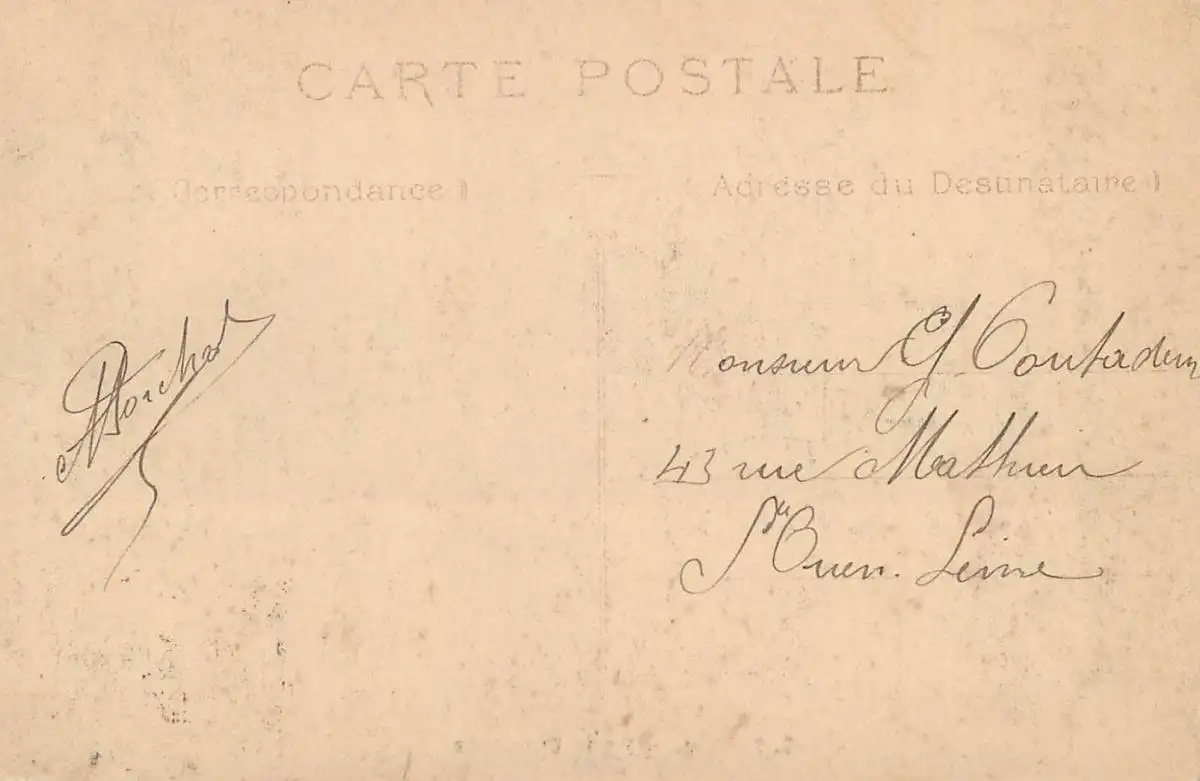 CARTE POSTALE
Correspondance
Adresse du Destinataire
Monsieur G. Contadeur
43 rue Mathieu
St Ouen. Seine